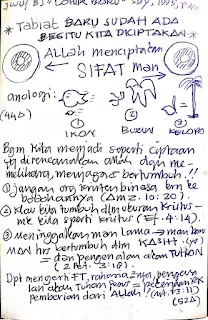 * Tabiat BARU SUDAH ADA
BEGITU KITA DICIPTAKAN *
Allah menciptakan
SIFAT Man
analogi:
(44Δ)
①
IKAN
②
BURUNG
③
KELOPO
Bgm kita menjadi seperti ciptaan
yg direncanakan Allah dgn me-
melihara, menjaga, bertumbuh!!
① Jangan org Kristen binasa krn ke
bodohannya (Amz. 10:20).
② Kalau kita tumbuh dlm ukuran Kristus -
me kita sperti Kristus (Ef. 4:14).
③ Meninggalkan man lama → man baru
MAN hrs bertumbuh dlm KASIH
= dan pengenalan akan TUHAN
(2 Pet. 3:18).
Dpt mengerti FT, rahasia2nya, pengena
lan akan Tuhan
pemberian dari Allah!! (Mt. 13:11)
(52Δ)